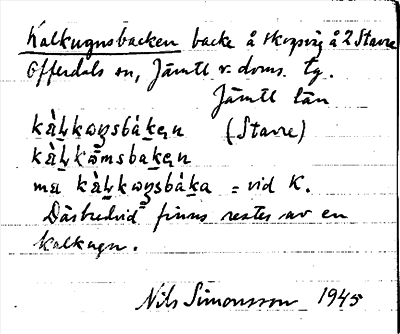 Kalkugnsbacken backe å skogsväg å 2 Stavre
Offerdals sn, Jämtl v. doms. tg.
Jämtl län
kàl̥kωgsbákęn (Stavre)
kàl̥kω̄msbakęn
ma kàl̥kωgsbáka = vid K.
Därbredvid finns rester av en
kalkugn.
Nils Simonsson 1945